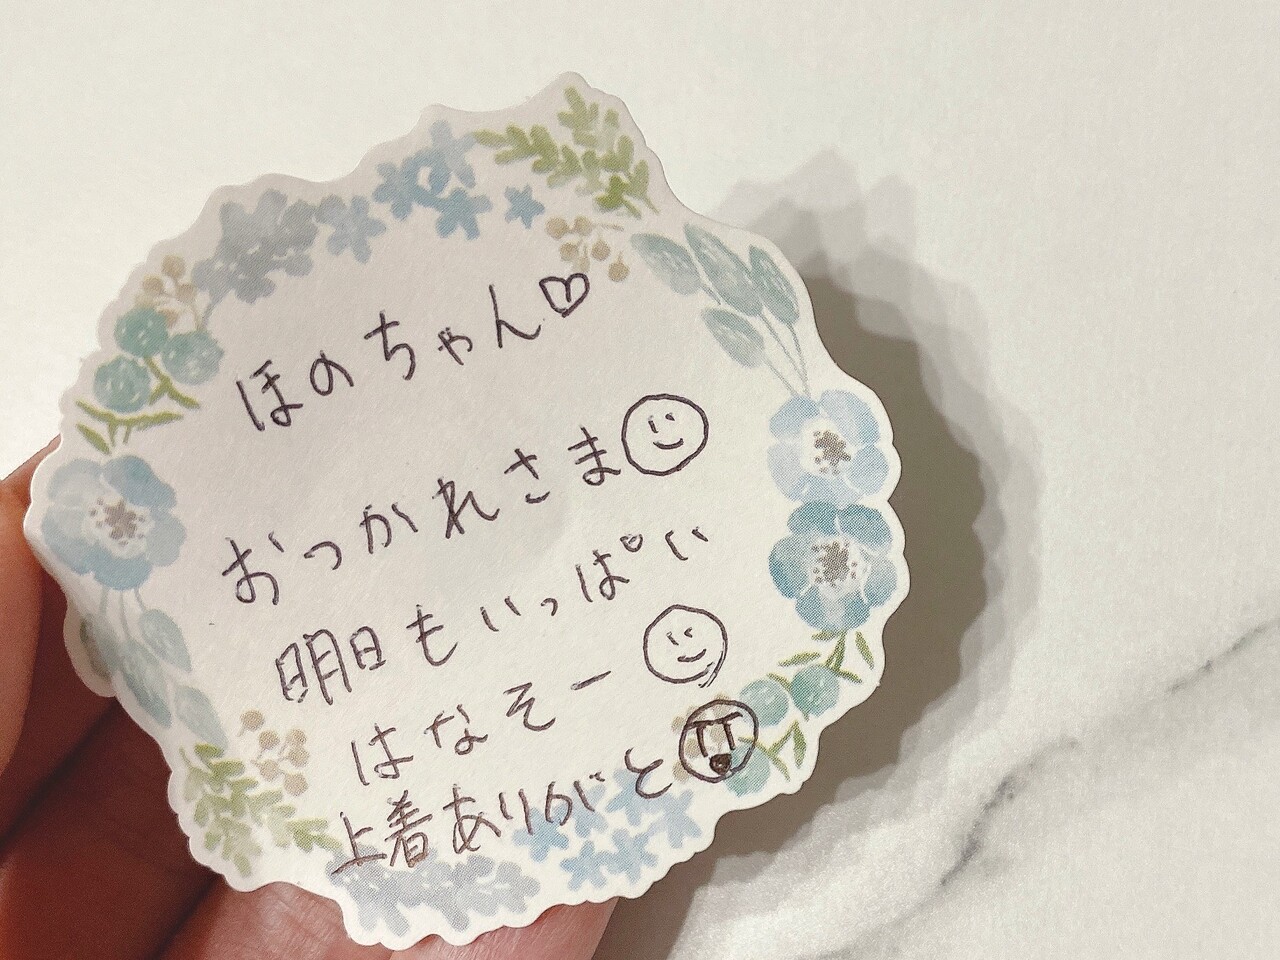 ほのちゃん♡
おっかれさま
明日もいっぱい
はなそー
上着ありがと